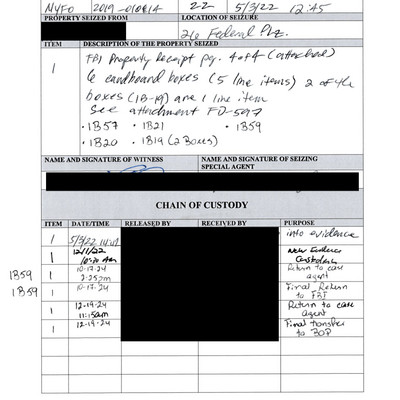 NYFO 2019-01614 22 5/3/22 12:45
PROPERTY SEIZED FROM LOCATION OF SEIZURE
26 Federal Plz.
ITEM DESCRIPTION OF THE PROPERTY SEIZED
1 FBI Property Receipt pg. 4 of 4 (attached)
6 cardboard boxes (5 line items) 2 of the
boxes (1B-19) are 1 line item
See attachment FD-597
• 1B57 • 1B21 • 1B59
• 1B20 • 1B19 (2 Boxes)
NAME AND SIGNATURE OF WITNESS NAME AND SIGNATURE OF SEIZING SPECIAL AGENT
CHAIN OF CUSTODY
ITEM DATE/TIME RELEASED BY RECEIVED BY PURPOSE
1 5/3/22 into evidence
1 12/1/22 New Evidence
Custodian
1B59 1 10-17-24 2:25pm Return to case agent
1B59 1 10-17-24 Final Return to FBI
1 12-19-24 11:15am Return to case agent
1 12-19-24 Final transfer to BOP